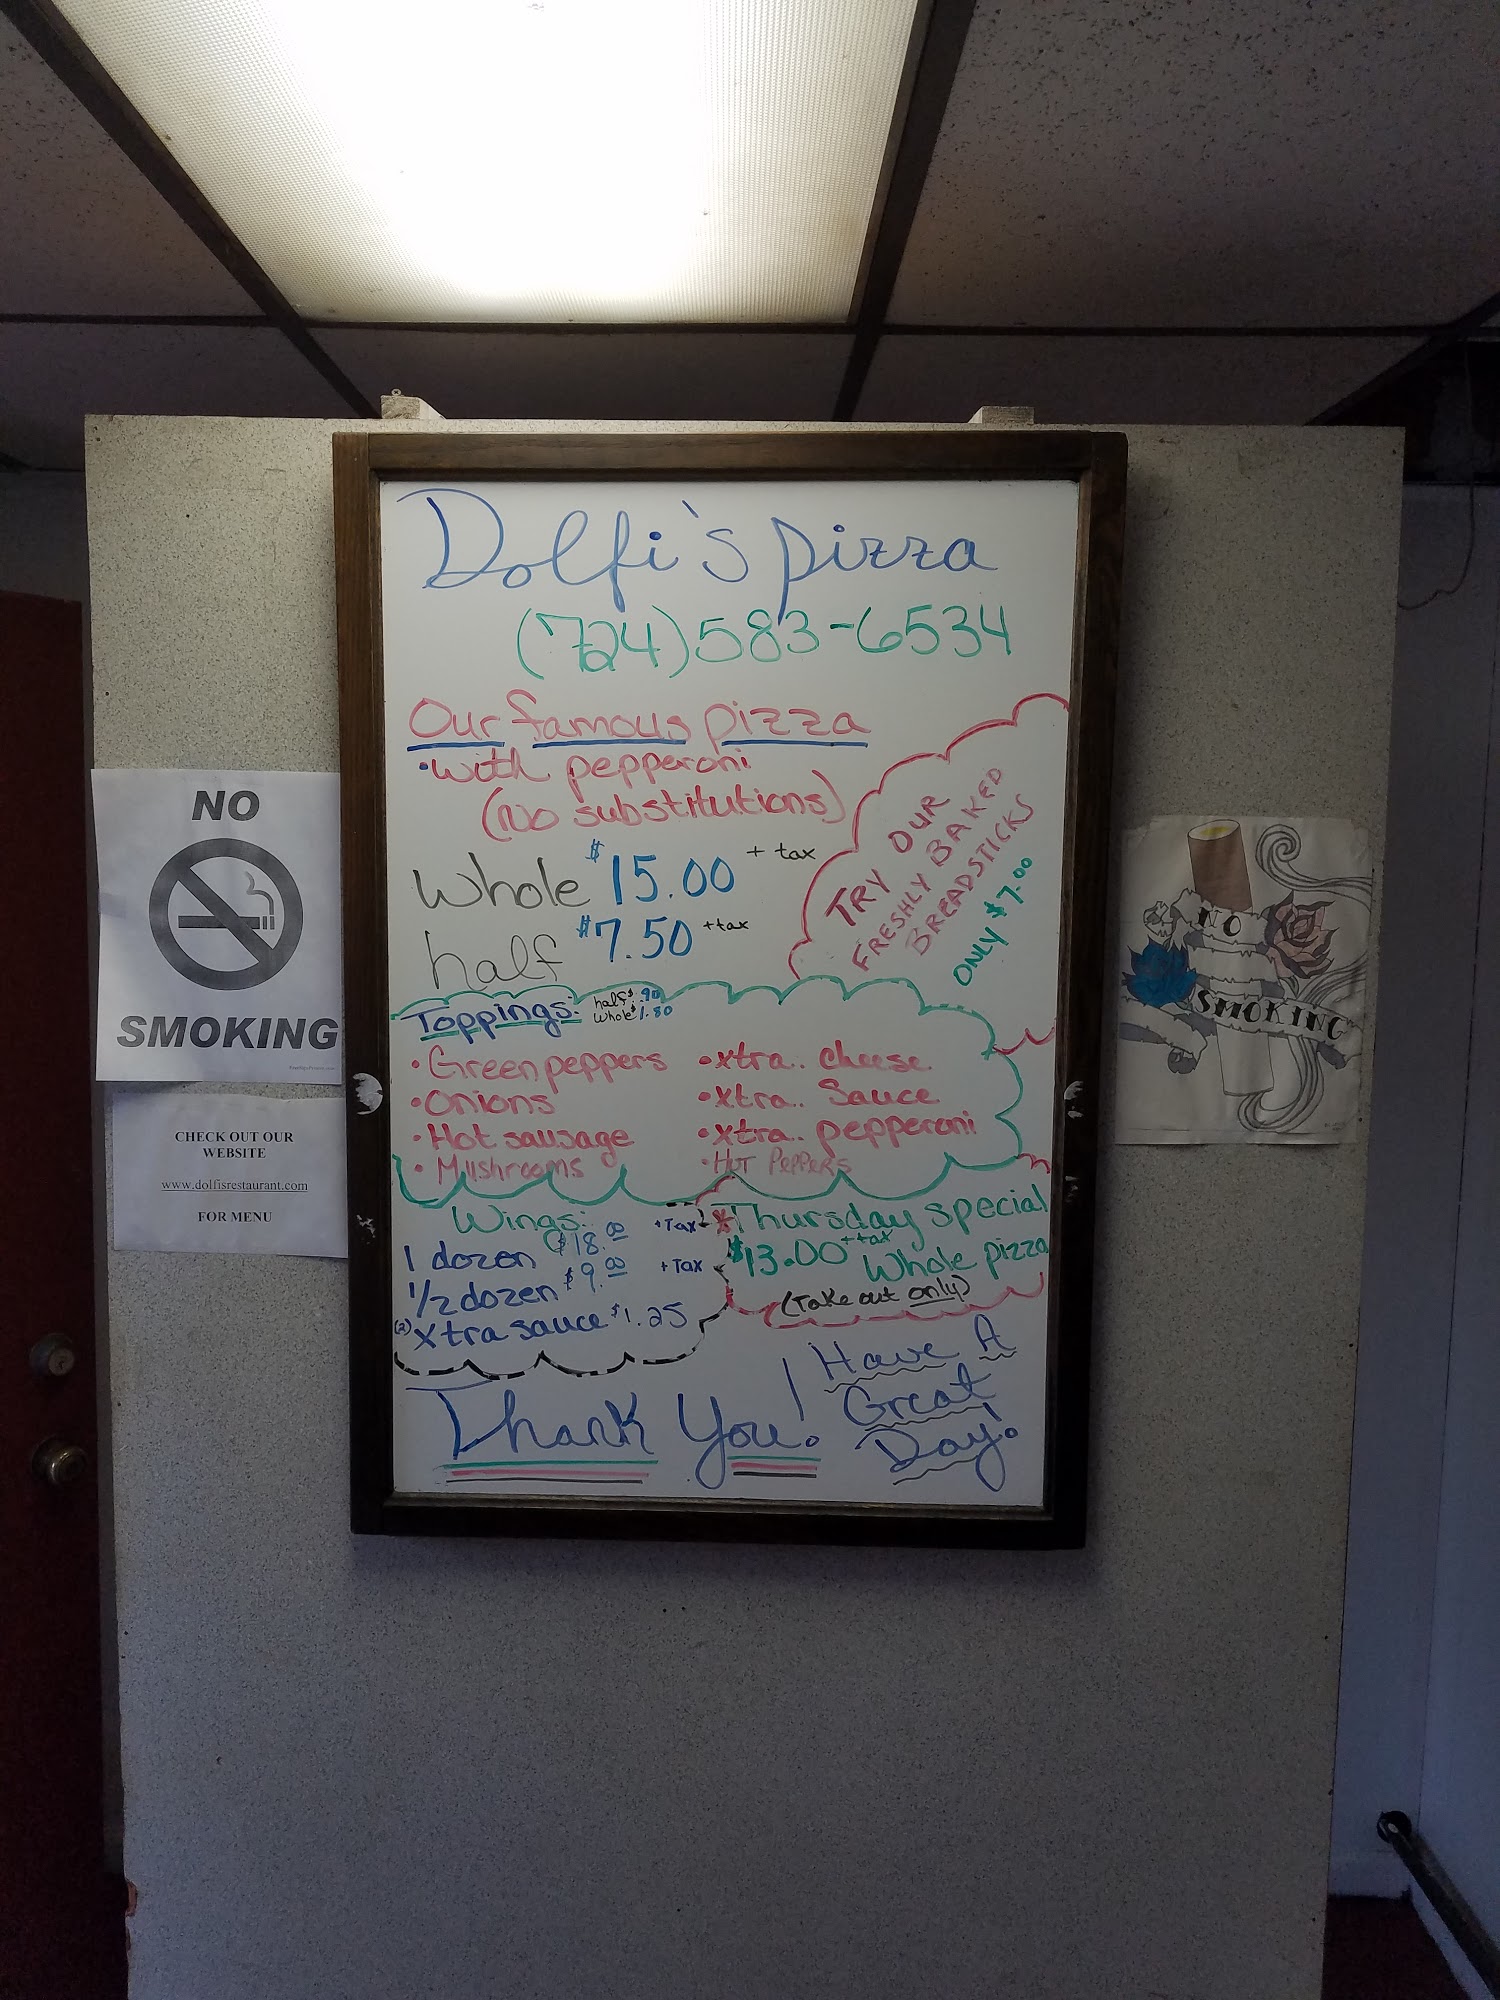 Dolfi's pizza
(724) 583-6534
Our famous pizza
•with pepperoni
(No substitutions)
Whole $15.00 + tax
half $7.50 + tax
TRY OUR
FRESHLY BAKED
BREADSTICKS
ONLY $7.00
Toppings: half $.90
whole $1.80
•Green peppers
•Onions
•Hot sausage
•Mushrooms
•xtra.. cheese
•xtra.. Sauce
•xtra.. pepperoni
•HOT PEPPERS
Wings:
1 dozen $18.00 + Tax
1/2 dozen $9.00 + Tax
(2) xtra sauce $1.25
*Thursday special
$13.00 + tax Whole pizza
(Take out only)
Thank You!
Have A
Great
Day!
NO
SMOKING
CHECK OUT OUR
WEBSITE
www.dolfisrestaurant.com
FOR MENU
NO
SMOKING